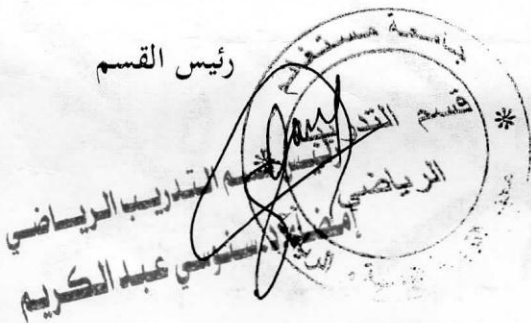 رئيس القسم
جامعة مستغانم
قسم التدريب
الرياضي
رئيس قسم التدريب الرياضي
إمضاء: د. سنوسي عبد الكريم